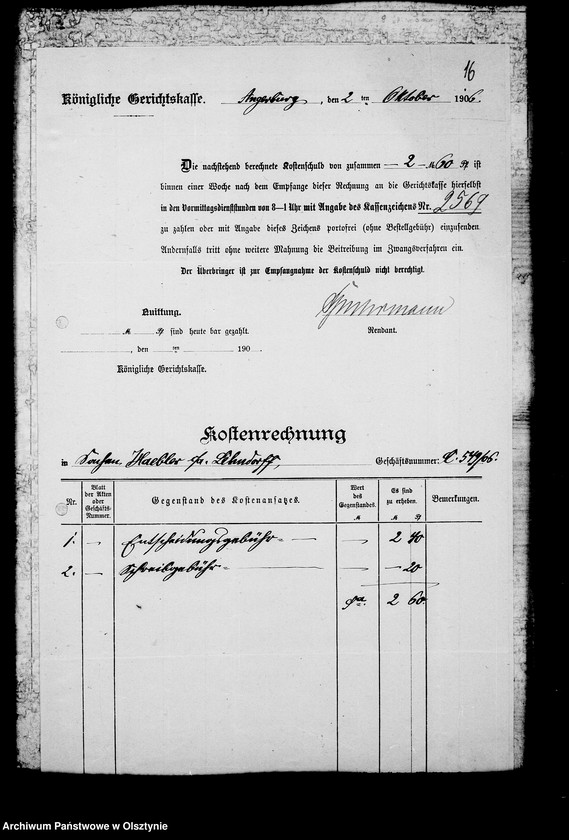 16
Königliche Gerichtskasse. Angerburg, den 2 ten Oktober 1906.
Die nachstehend berechnete Kostenschuld von zusammen — 2 — M 60 Pf ist
binnen einer Woche nach dem Empfange dieser Rechnung an die Gerichtskasse hierselbst
in den Vormittagsdienststunden von 8—1 Uhr mit Angabe des Kassenzeichens Nr. 2569
zu zahlen oder mit Angabe dieses Zeichens portofrei (ohne Bestellgebühr) einzusenden
Andernfalls tritt ohne weitere Mahnung die Beitreibung im Zwangsverfahren ein.
Der Überbringer ist zur Empfangnahme der Kostenschuld nicht berechtigt.
Quittung.
M Pf sind heute bar gezahlt.
Rendant.
, den ten 190
Königliche Gerichtskasse.
Kostenrechnung
in Sachen Haebler /a. Lehndorff, Geschäftsnummer: C. 549/06.
Nr. Blatt der Akten oder Geschäfts-Nummer. Gegenstand des Kostenansatzes. Wert des Gegenstandes. M Es sind zu erheben. M Pf Bemerkungen.
1. — Entscheidungsgebühr — — 2 40
2. — Schreibgebühr — — — 20
Sa. 2 60
Archiwum Państwowe w Olsztynie